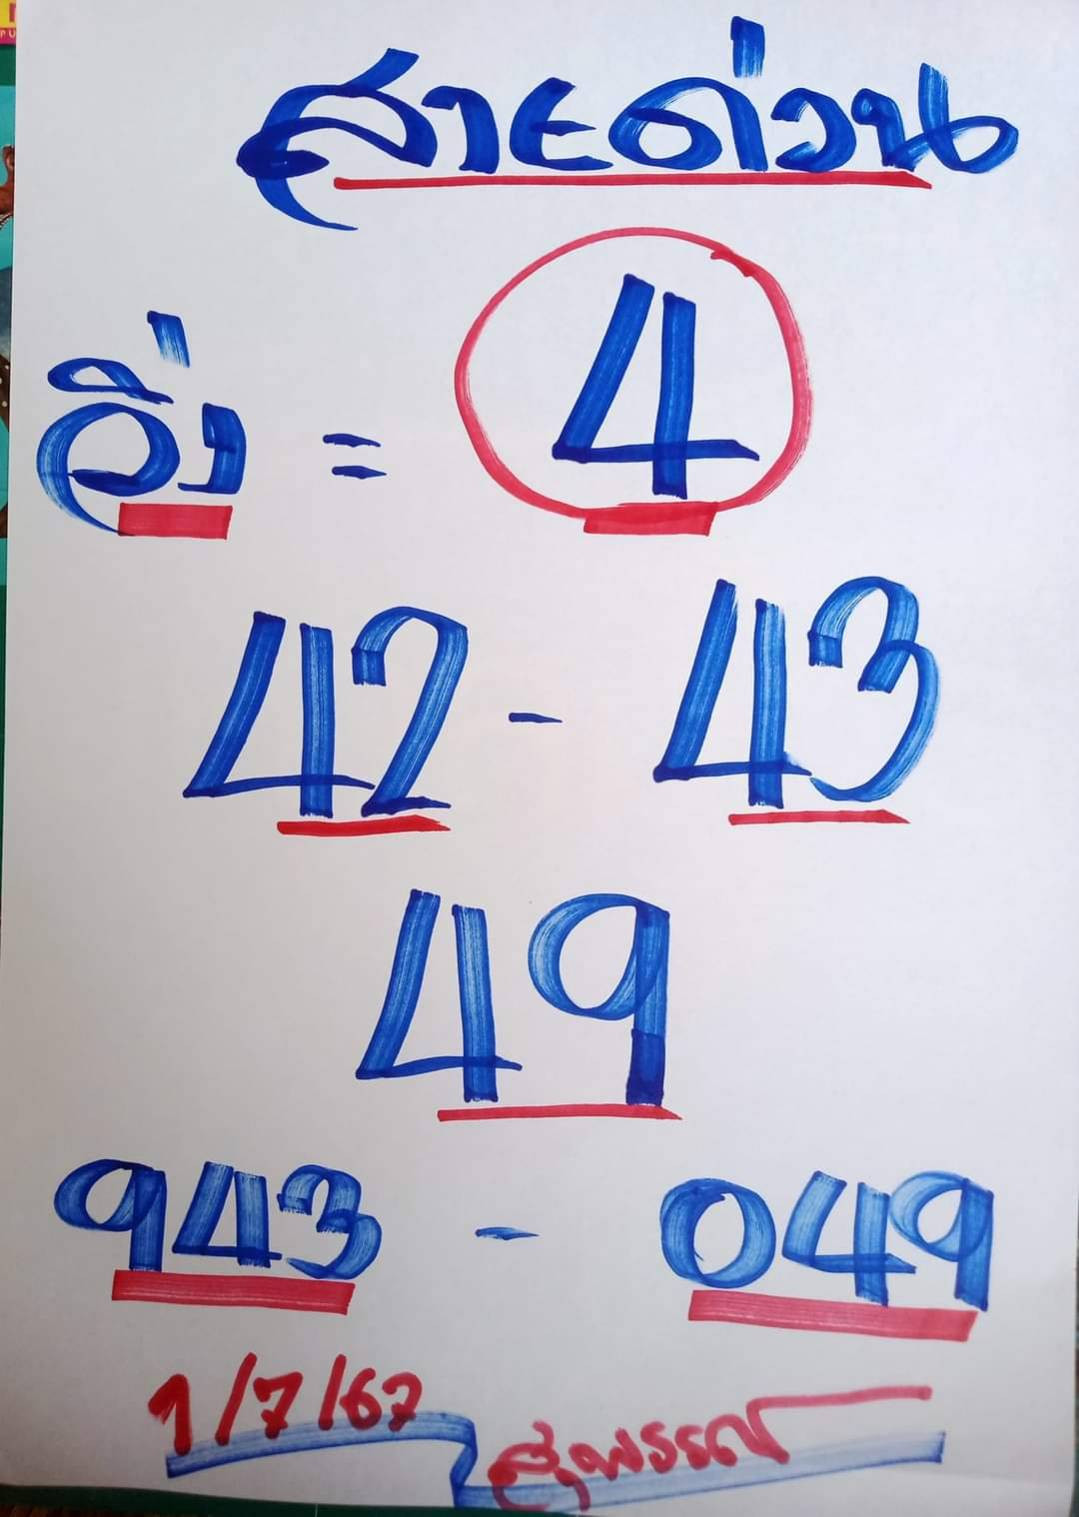 สายด่วน
อิ่ง = 4
42 - 43
49
943 - 049
1/7/67 สุพรรณ